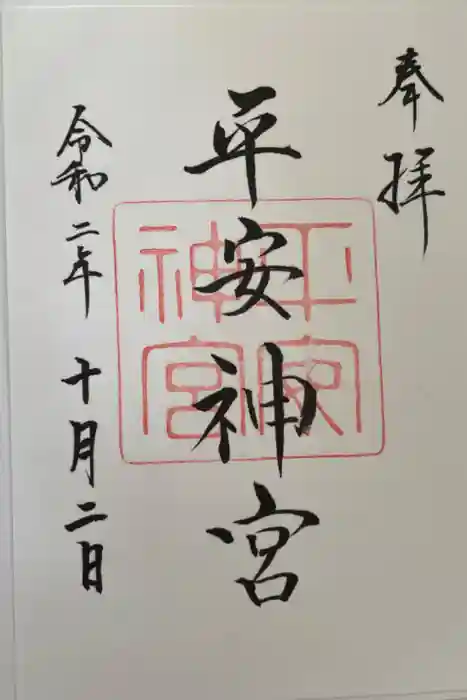 奉拝
平安神宮
平安
神宮
令和二年 十月二日